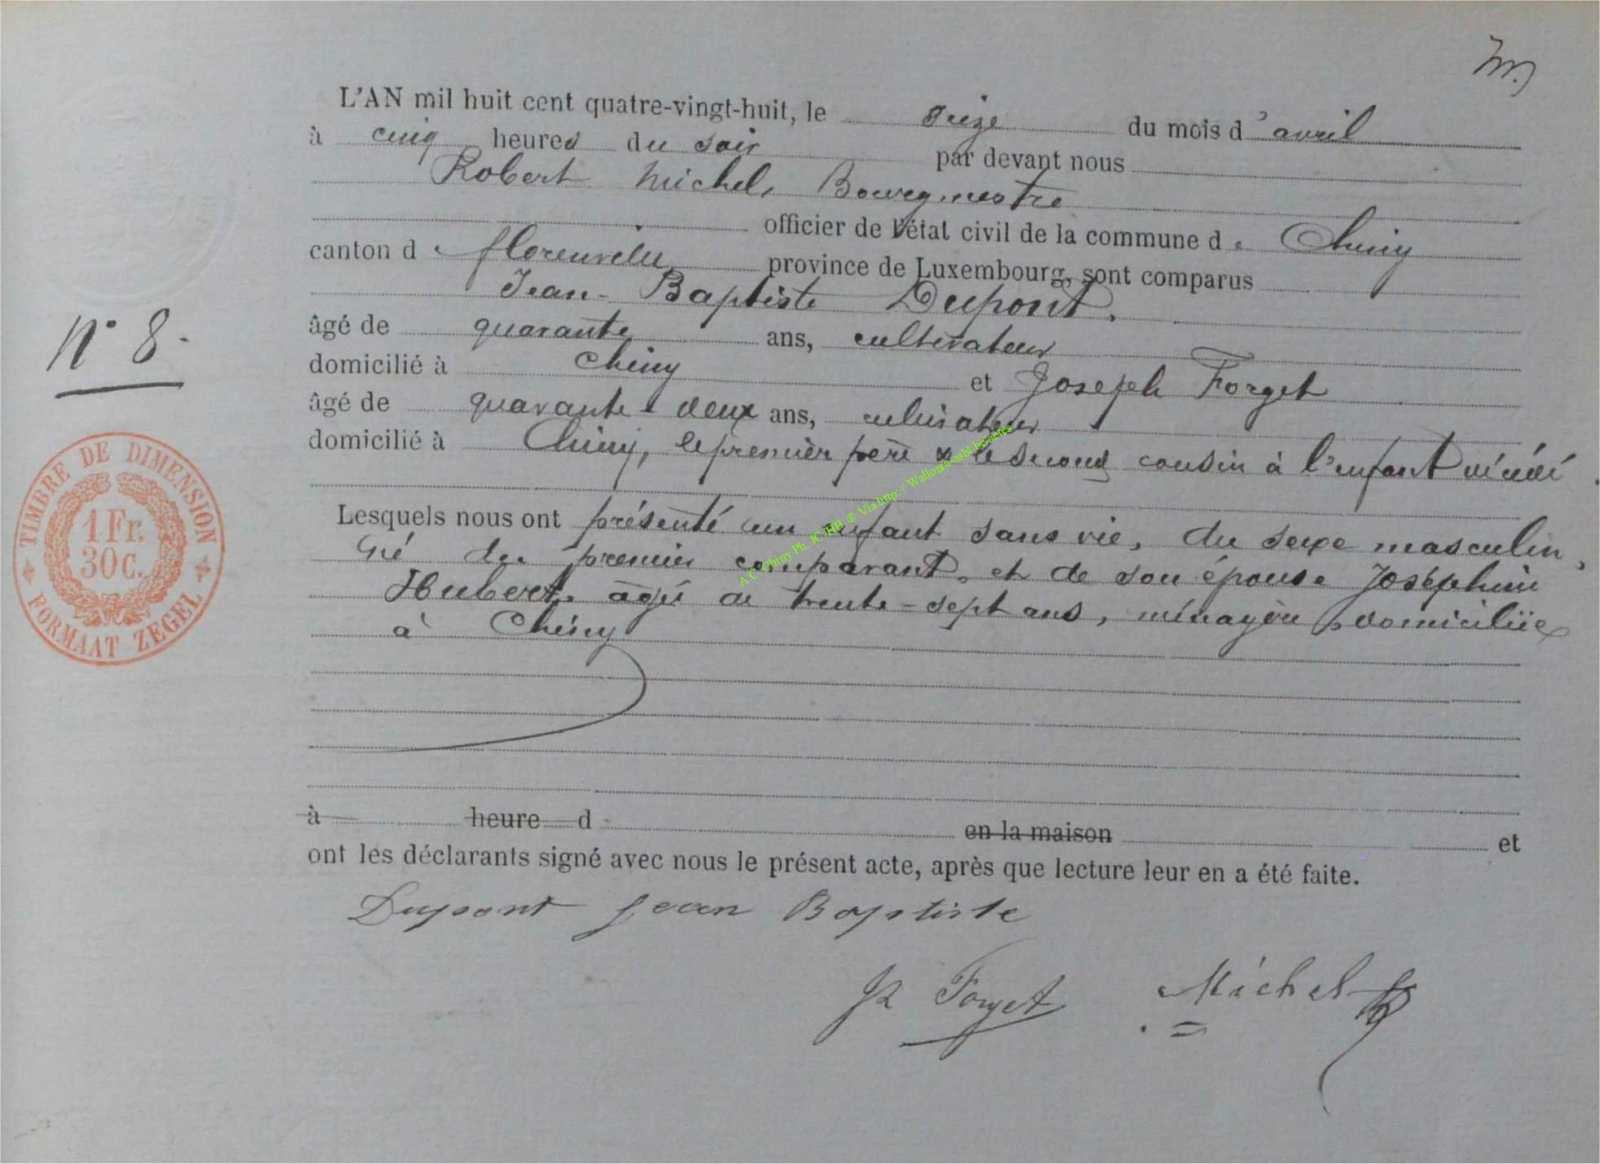 L'AN mil huit cent quatre-vingt-huit, le seize du mois d'avril
à cinq heures du soir par devant nous
Robert Michel, Bourgmestre
officier de l'état civil de la commune de Chiny
canton de florenville province de Luxembourg, sont comparus
Jean-Baptiste Dupont,
âgé de quarante ans, cultivateur
domicilié à Chiny et Joseph Forget
âgé de quarante-deux ans, cultivateur
domicilié à Chiny, le premier père & le second cousin à l'enfant décédé
Lesquels nous ont présenté un enfant sans vie, du sexe masculin,
né du premier comparant, et de son épouse Joséphine
Hubert, âgée de trente-sept ans, ménagère, domiciliée
à Chiny
à heure d en la maison et
ont les déclarants signé avec nous le présent acte, après que lecture leur en a été faite.
Dupont Jean Baptiste
Forget Michel
N° 8.
TIMBRE DE DIMENSION
1 Fr.
30 C.
FORMAAT ZEGEL